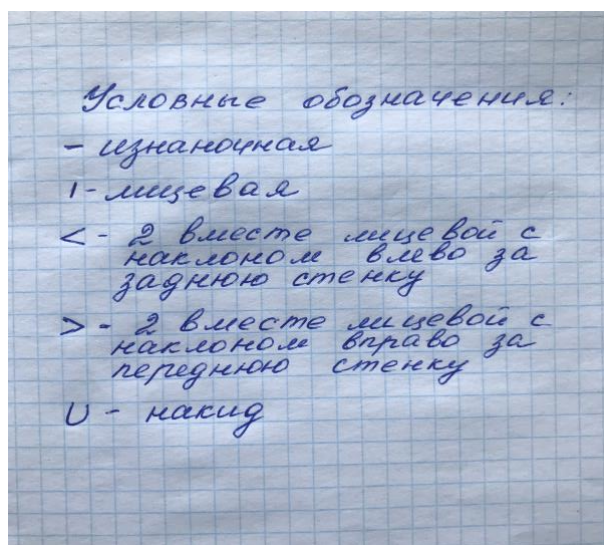 Условные обозначения:
- изнаночная
ı - лицевая
< - 2 вместе лицевой с
наклоном влево за
заднюю стенку
> - 2 вместе лицевой с
наклоном вправо за
переднюю стенку
U - накид